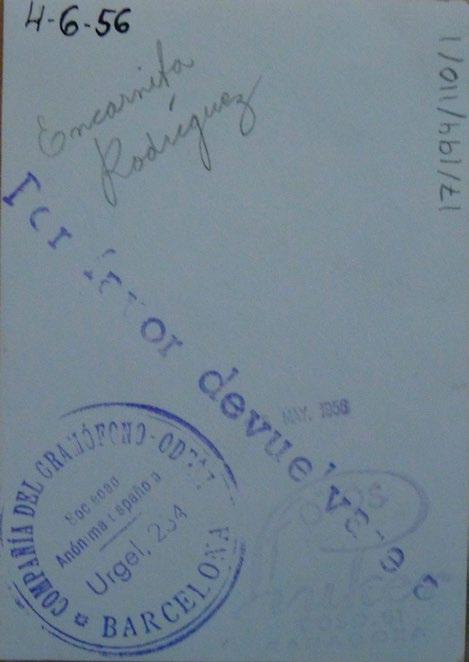 4-6-56
Encarnita
Rodríguez
17/194/110/1
Por favor devuelvase
MAY. 1956
COMPAÑÍA DEL GRAMÓFONO-ODEON
Sociedad
Anónima Española
Urgel, 234
BARCELONA
FOTOS